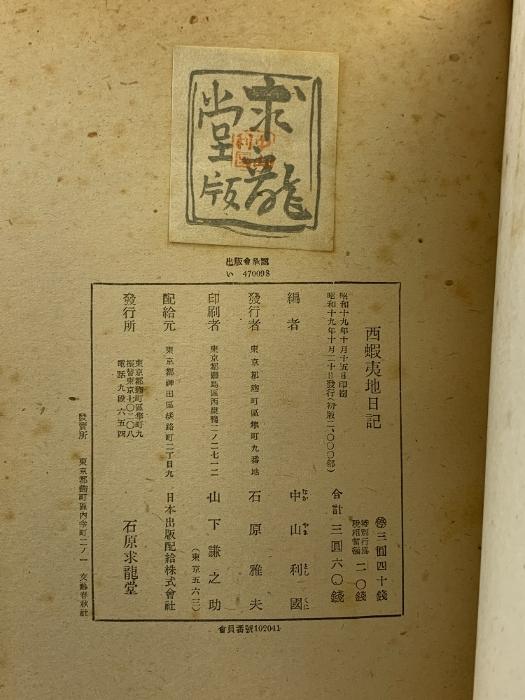 求龍
堂版
出版會承認
い 470098
西蝦夷地日記
賣三圓四十錢
特別行爲税相當額 二〇錢
合計 三圓六〇錢
昭和十九年十月十五日印刷
昭和十九年十月二十日發行(初版二、〇〇〇部)
編者 中山利國
なか やま とし くに
發行者 東京都麹町區隼町九番地 石原雅夫
印刷者 東京都豐島區西巢鴨二ノ二七一二 山下謙之助
(東京五六三)
配給元 東京都神田區淡路町二丁目九 日本出版配給株式會社
發行所 東京都麹町區隼町九 石原求龍堂
振替東京七〇二〇八
電話九段六五四
發賣所 東京都麹町區內幸町二ノ一 文藝春秋社
會員番號102041